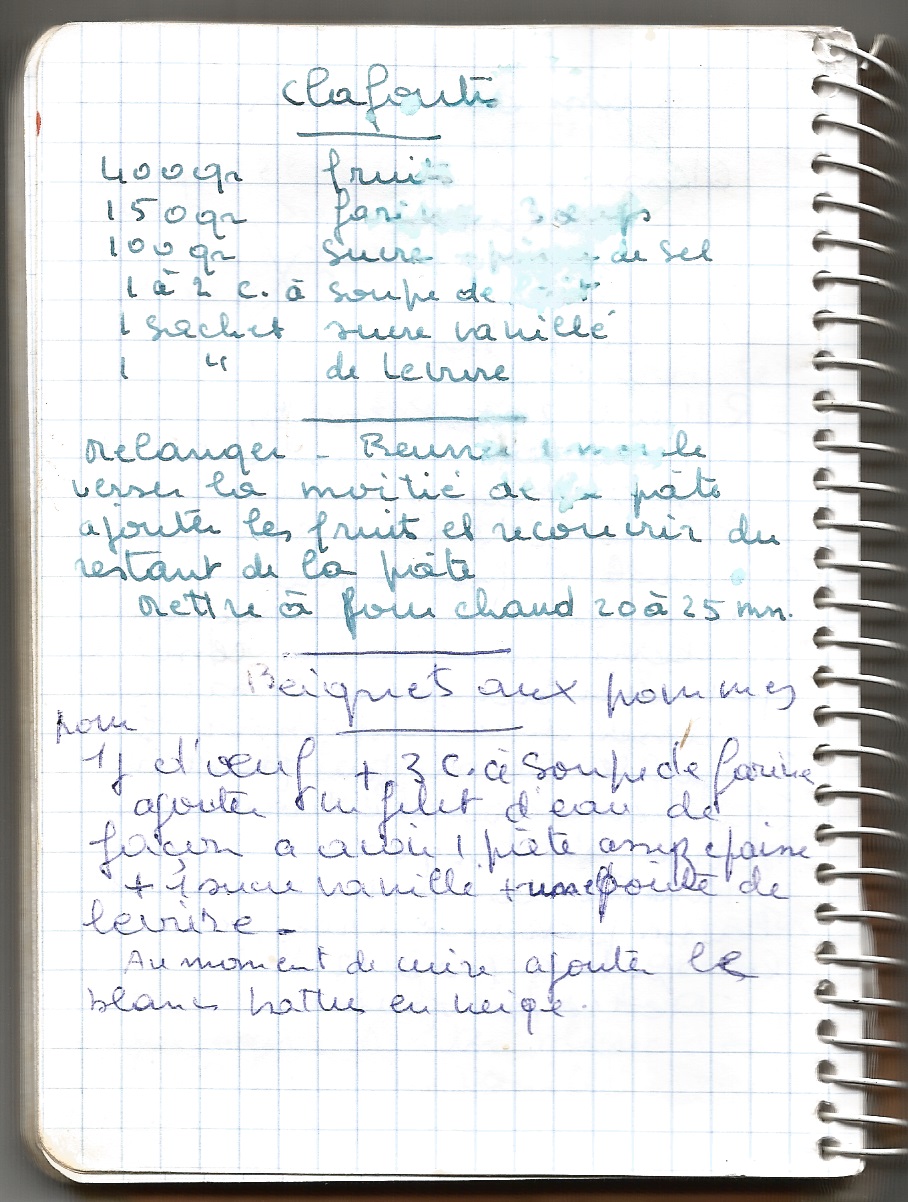 Clafoutis
400gr fruits
150gr farine 3 œufs
100gr sucre pincée de sel
1 à 2 c. à soupe de
1 Sachet sucre vanillé
1 " de Levure
Melanger - Beurrer 1 moule
verser la moitié de la pâte
ajouter les fruits et recouvrir du
restant de la pâte
Mettre à four chaud 20 à 25 mn.
Beignets aux pommes
pour
1j d'œuf + 3 c. à Soupe de farine
ajouter un filet d'eau de
façon a avoir 1 pâte assez épaisse
+ 1 sucre vanillé + une pointe de
levure -
Au moment de cuire ajouter les
blancs battus en neige.